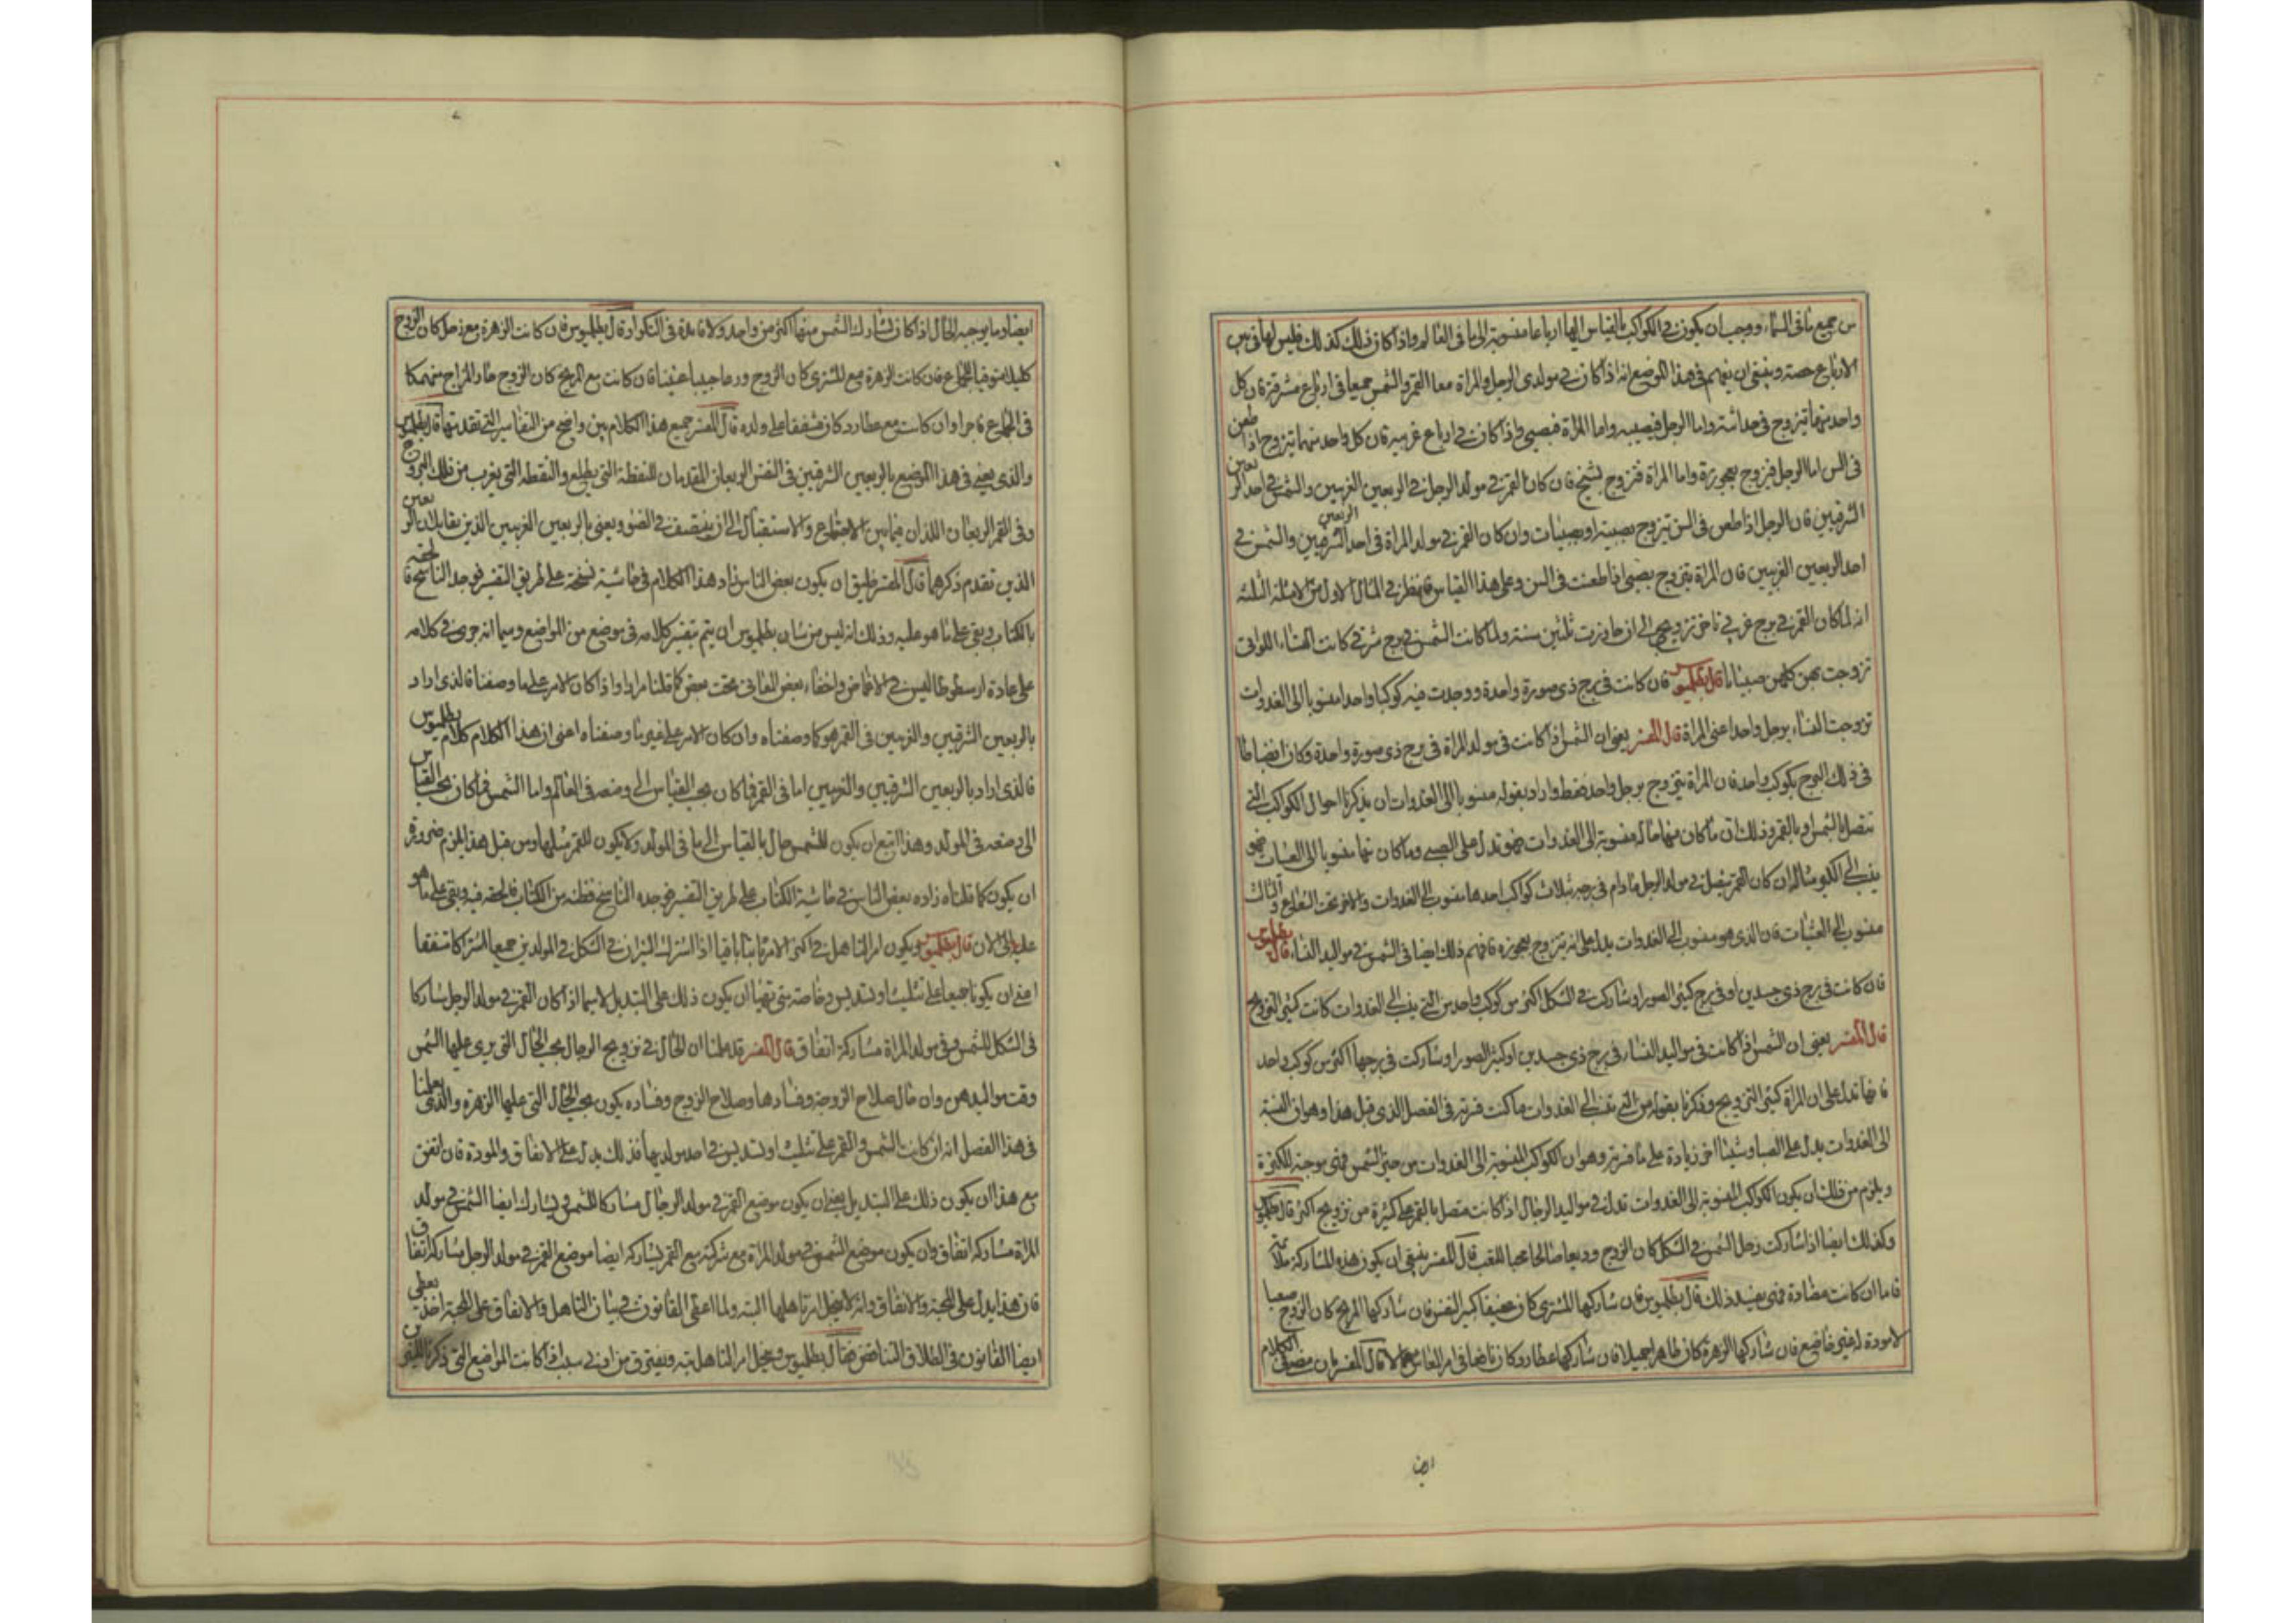 من جميع ما في السماء ووجب ان يكون في الكواكب بالقياس اليها ارباعا منسوبة الى ما في العالم واذا كان ذلك كذلك فليس لها في هذين
الارباع حصة وينبغي ان نفهم في هذا الموضع انه اذا كان في مولدى الرجل والمراة معا القمر والشمس جميعا في ارباع مشرقة فان كل
واحد منهما يتزوج في حداثته واما الرجل فبصبية واما المراة فبصبي واذا كان في ارباع غربية فان كل واحد منهما يتزوج اذا طعن
في السن اما الرجل فيزوج بعجوزة واما المراة فتزوج بشيخ فان كان القمر في مولد الرجل في الربعين الغربيين والشمس في احد الربعين
الشرقيين فان الرجل اذا طعن في السن تيزوج بصبية او بصبيات وان كان القمر في مولد المراة في احد الربعين الشرقيين والشمس في
احد الربعين الغربيين فان المراة يتزوج بصبي اذا طعنت في السن وعلى هذا القياس فانظر في المثال الاول من الامثلة الثلثة
انه لما كان القمر في برج غربي تاخر تزويجي الى ان جاوزت ثلثين سنة ولما كانت الشمس في برج شرقي كانت النساء اللواتي
تزوجت بهن كلهن صبيانا قال بطلميوس فان كانت في برج ذى صورة واحدة ووجدت فيه كوكبا واحدا منسوبا الى الغدوات
تزوجت النساء برجل واحد اعني المراة قال المفسر يعني ان الشمس اذا كانت في مولد المراة في برج ذى صورة واحدة وكان ايضا
في ذلك البرج بكوكب واحد فان المراة يتزوج برجل واحد فقط واراد بقوله منسوبا الى الغدوات ان يذكرنا احوال الكواكب التي
تتصل بالشمس او بالقمر وذلك ان ما كان منها حاله منسوبة الى الغدوات فهو تدل على الصبي وما كان منها منسوبا الى العشيات فهو
ينسب الى الكهل مثاله ان كان القمر يتصل في مولد الرجل ما دام في برجه بثلاث كواكب احدها منسوب الى الغدوات والاخر تحت الشعاع والثالث
منسوب الى العشيات فان الذى هو منسوب الى الغدوات يدل على انه يتزوج بعجوزه فافهم ذلك ايضا في الشمس في مواليد النساء قال بطلميوس
فان كانت في برج ذى جسدين او في برج كثير الصور او شاركت في الشكل اكثر من كوكب واحد من التي ينسب الى الغدوات كانت كثير التزويج
قال المفسر يعني ان الشمس اذا كانت في مواليد النساء في برج ذى جسدين او كثير الصور او شاركت في برجها اكثر من كوكب واحد
فانها تدل على ان المراة كثير التزويج وذكرنا بقوله من التي ينسب الى الغدوات ما كنت فسرته في الفصل الذى قبل هذا وهو ان النسبة
الى الغدوات يدل على الصبا وشيئا اخر زيادة على ما فسرته وهو ان الكواكب المنسوبة الى الغدوات من حيز الشمس فهي موجبة للكثرة
ويلزم من ذلك ان يكون الكواكب المنسوبة الى الغدوات تدل في مواليد الرجال اذا كانت متصل بالقمر على كثيرة من تزويج اكثر قال بطلميوس
وكذلك ايضا اذا شاركت زحل الشمس في الشكل كان الزوج وديعا صالحا محبا للتعب قال المفسر ينبغي ان يكون هذه المشاركة ملائمة
فاما ان كانت مضادة فهي بضد ذلك قال بطلميوس فان شاركها المشترى كان عفيفا كبير النفس فان شاركها المريخ كان الزوج صعبا
لا مودة له غير خاضع فان شاركها الزهرة كان ظاهرا جميلا فان شاركها عطارد كان ناضجا في امر المعاش قال المفسر الكلام
ايض
ايضا وما يوجبه الحال اذا كان تشارك الشمس منها اكثر من واحد ولا فايدة في التكرار قال بطلميوس فان كانت الزهرة مع زحل كان الزوج
كليلا متوقيا للجماع فان كانت الزهرة مع المشترى كان الزوج ورعا حييا عفيفا فان كانت مع المريخ كان الزوج حاد المزاج منهمكا
في الجماع فاجرا وان كانت مع عطارد كان مشفقا على ولده قال المفسر جميع هذا الكلام بين واضح من التفاسير التي تقدمتها قال بطلميوس
والذى يعني في هذا الموضع بالربعين الشرقيين في الشمس الربعان المتقدمان للنقطة التي يطلع والنقطة التي يغرب من فلك البروج
وفي القمر الربعان اللذان فيما بين الاجتماع والاستقبال الى ان ينتصف في الضوء ويعني بالربعين الغربيين الذين يقابلان الربعين
الذين تقدم ذكرهما قال المفسر خليق ان يكون بعض الناس زاد هذا الكلام في حاشية نسخة على طريق التفسير فوجد الناسخ فالحقه
بالكتاب وبقي على ما هو عليه وذلك انه ليس من شان بطلميوس ان يتم بتفسير كلامه في موضع من المواضع وسيما انه جرى في كلامه
على عادة ارسطوطاليس في الاغماض واخفاء بعض المعاني تحت بعض كما قلنا مرارا واذا كان الامر على ما وصفنا فالذى اراد
بالربعين الشرقيين والغربيين في القمر هو كما وصفناه وان كان الامر على غير ما وصفناه اعني ان هذا الكلام كلام بطلميوس
فالذى اراد بالربعين الشرقيين والغربيين اما في القمر فما كان بحسب القياس الى وضعه في العالم واما الشمس فما كان بحسب القياس
الى وضعه في المولد وهذا يتبع ان يكون للشمس حال بالقياس الى ما في المولد ولا يكون للقمر مثلها ومن قبل هذا يلزم ضرورة
ان يكون كما قلناه زاده بعض الناس في حاشية الكتاب على طريق التفسير فوجده الناسخ فظنه من الكتاب فالحقه فيه وبقي على ما هو
عليه الى الان قال بطلميوس ويكون امر التاهل في اكثر الامر ثابتا باقيا اذا اشترك النيران في الشكل في المولدين جميعا اشتراكا متفقا
اعني ان يكونا جميعا على تثليث او تسديس وخاصة متى تهيا ان يكون ذلك على التبديل لا سيما اذا كان القمر في مولد الرجل مشاركا
في الشكل للشمس في مولد المراة مشاركة اتفاق قال المفسر قد علمنا ان الحال في تزويج الرجال بحسب الحال التي يرى عليها الشمس
وقت مواليدهن وان حال صلاح الزوجة وفسادها وصلاح الزوج وفساده يكون بحسب الحال التي عليها الزهرة والذى يعلمنا
في هذا الفصل انه ان كانت الشمس والقمر على تثليث او تسديس في احد مولديهما فذلك يدل على الاتفاق والمودة فان اتفق
مع هذا ان يكون ذلك على التبديل يعني ان يكون موضع القمر في مولد الرجال مشاركا للشمس ويشارك ايضا الشمس في مولد
المراة مشاركة اتفاق وان يكون موضع الشمس في مولد المراة مع شركته مع القمر يشاركه ايضا موضع القمر في مولد الرجل مشاركة اتفاق
فان هذا يدل على المحبة والاتفاق وانه لا ينحل امر تاهلهما البتة ولما اعطى القانون في بيان التاهل والاتفاق على المحبة اخذ يعطي
ايضا القانون في الطلاق التباغض فقال بطلميوس وينحل امر التاهل بتة ويفترق من ادنى سبب اذا كانت المواضع التي ذكرنا للنيرين